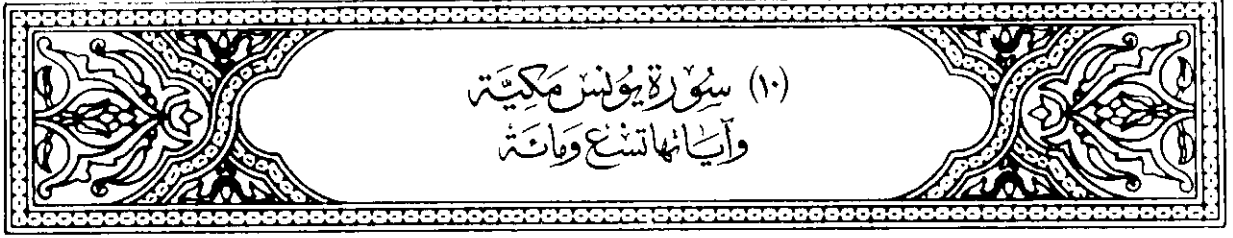 (١٠) سُورَة يُونس مَكيَّة
وآيَاتها تسْع وَمائَة